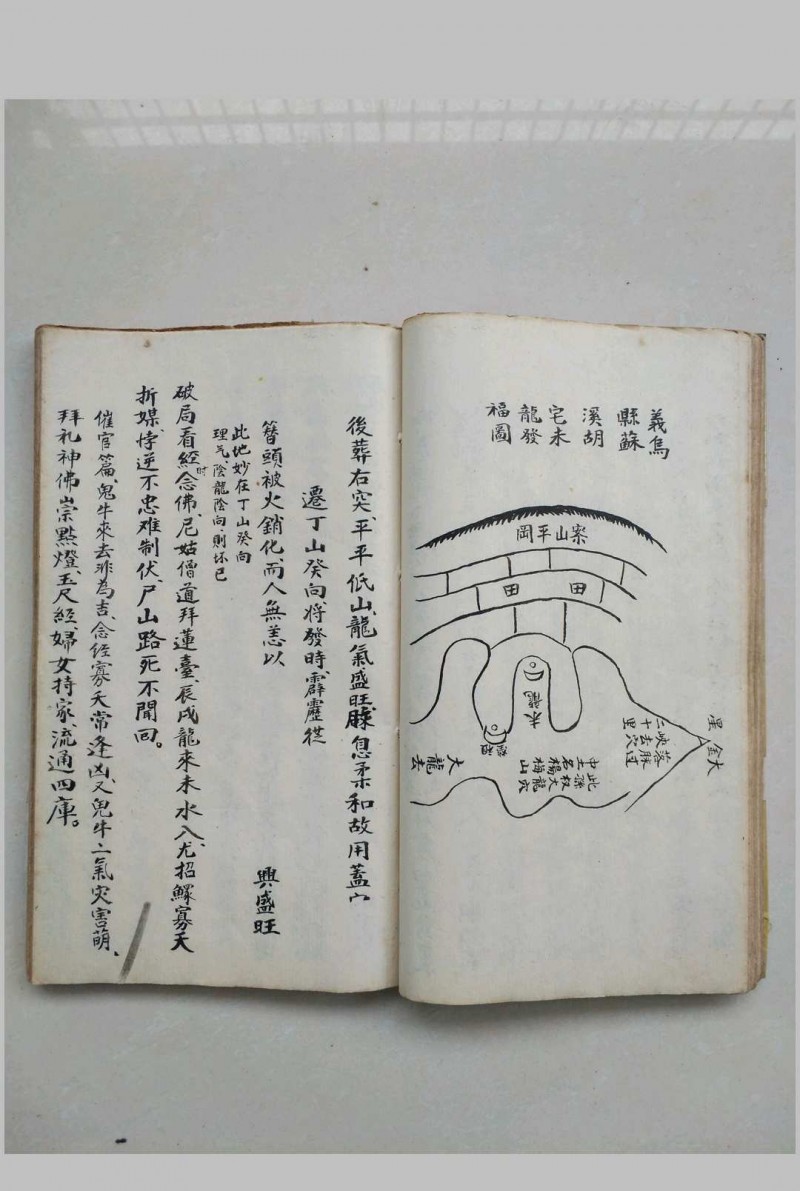 義烏
縣蘇
溪胡
宅未
龍發
福圖
案山平岡
田 田
未龍
大金
星
落脉
峽去穴過
二十里
此孫
枝大龍穴
名楊梅山
中土
大龍去
後葬右突平平低山、龍氣盛旺、脉息柔和故用蓋穴
遷丁山癸向、將發時、霹靂從
簪頭被火銷化、而人無恙以
興盛旺
此地妙在丁山癸向
理气、陰龍陰向、則坏已
破局看經時念佛、尼姑僧道拜蓮臺、辰戌龍來未水入、尤招鰥寡夭
折媒、悖逆不忠难制伏、尸山路死不聞回。
催官篇、鬼牛來去非為吉、念经寡夭常逢凶、又鬼牛二氣灾害萌、
拜礼神佛崇點燈、玉尺經、婦女持家、流通四庫。